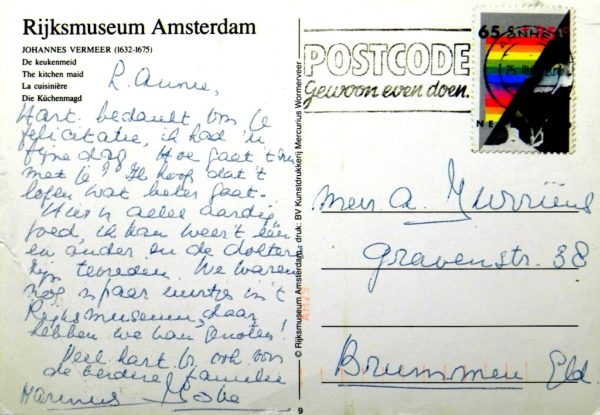 Rijksmuseum Amsterdam
JOHANNES VERMEER (1632-1675)
De keukenmeid
The kitchen maid
La cuisinière
Die Küchenmagd
Hart. bedankt om je
felicitatie, ik had 'n
fijne dag. Hoe gaat 't nu
met je? Ik hoop dat 't
lopen wat beter gaat.
Hier is alles aardig
goed, ik kan weer 't één
en ander en de dokters
zijn tevreden. We waren
nog 'n paar uurtjes in 't
Rijksmuseum, daar
hebben we van genoten!
Veel hart. gr. ook van
de verdere familie
Marinus
© Rijksmuseum Amsterdam - druk: BV Kunstdrukkerij Mercurius Wormerveer
POSTCODE
Gewoon even doen.
65
NE
mevr. A.
Gravenstr. 38
Brummen Gld.
9